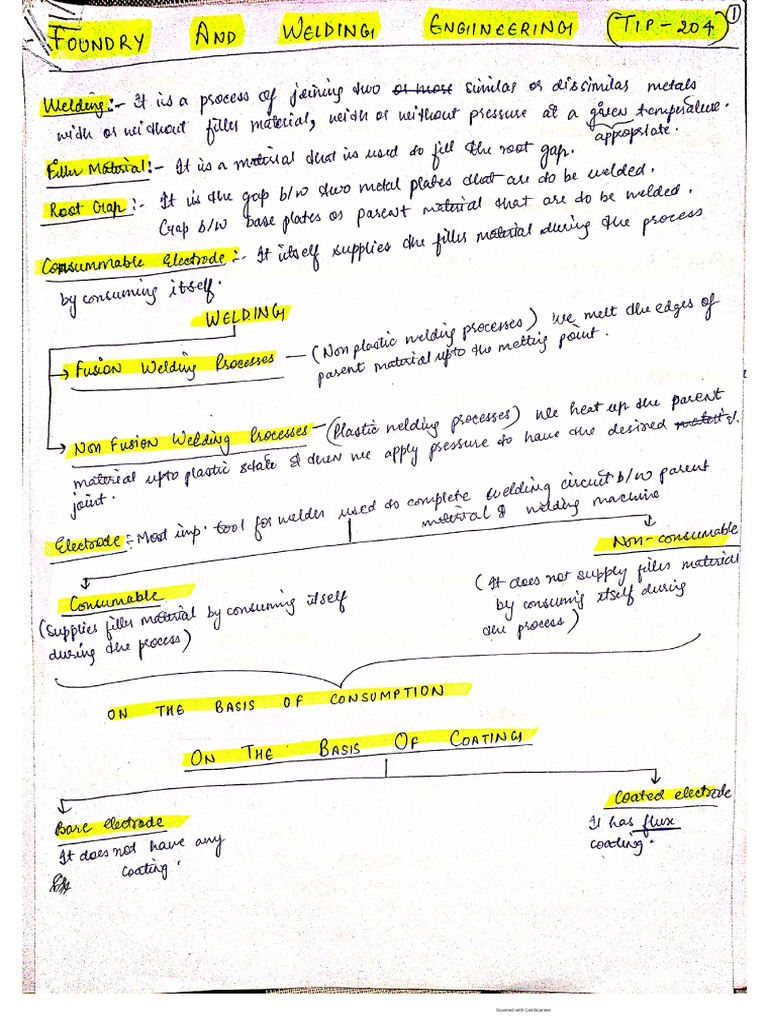 FOUNDRY AND WELDING ENGINEERING (TIP-204) 1
Welding:- It is a process of joining two or more similar or dissimilar metals
with or without filler material, with or without pressure at a given temperature.
appropriate.
Filler Material:- It is a material that is used to fill the root gap.
Root Gap:- It is the gap b/w two metal plates that are to be welded.
Gap b/w base plates or parent material that are to be welded.
Consummable Electrode:- It itself supplies the filler material during the process
by consuming itself.
WELDING
Fusion Welding Processes - (Non plastic welding processes) We melt the edges of
parent material upto the melting point.
Non Fusion Welding Processes - (Plastic welding processes) We heat up the parent
material upto plastic state & then we apply pressure to have the desired
joint.
Electrode:- Most imp. tool for welder used to complete welding circuit b/w parent
material & welding machine
Non-consumable
Consumable
(It does not supply filler material
by consuming itself during
the process)
(Supplies filler material by consuming itself
during the process)
ON THE BASIS OF CONSUMPTION
ON THE BASIS OF COATING
Coated electrode
It has flux
coating.
Bare electrode
It does not have any
coating.
Scanned with CamScanner